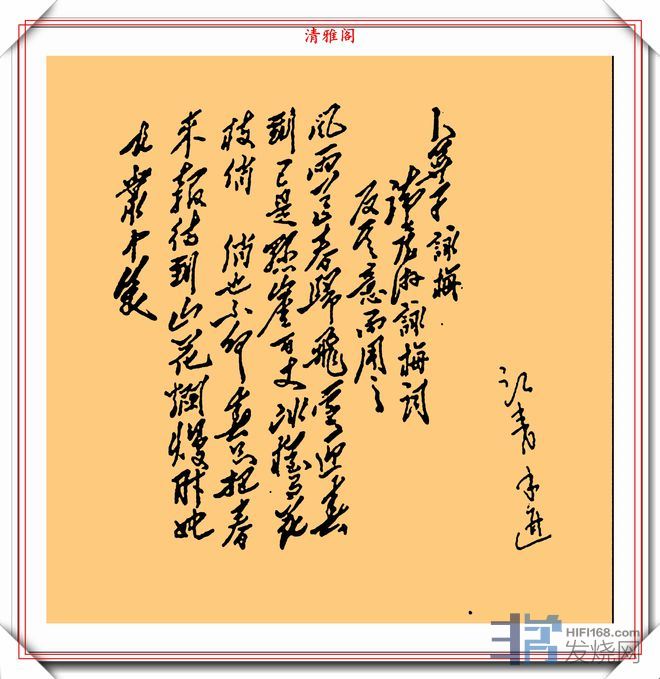 清雅阁
江青手迹
卜算子 詠梅
读陆游詠梅词
反其意而用之
风雨送春歸飛雪迎春
到已是懸崖百丈冰猶有花
枝俏 俏也不争春只把春
来報待到山花爛熳时她
在叢中笑
HIFI168.com
发烧网